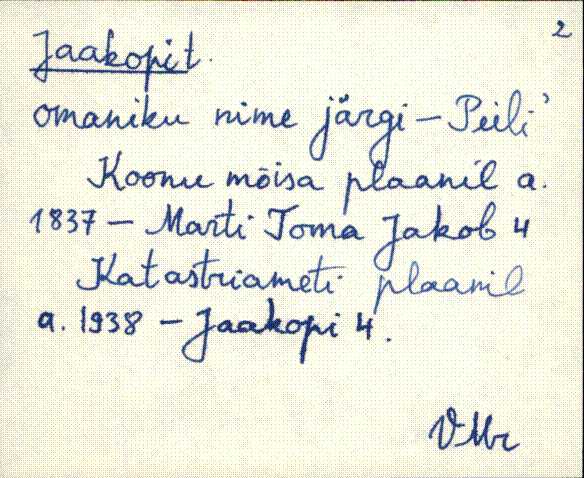 2
Jaakopit.
omaniku nime järgi - Peili'
Koonu mõisa plaanil a.
1837 - Marti Toma Jakob 4
Katastriameti plaanil
a. 1938 - Jaakopi 4.
VMr